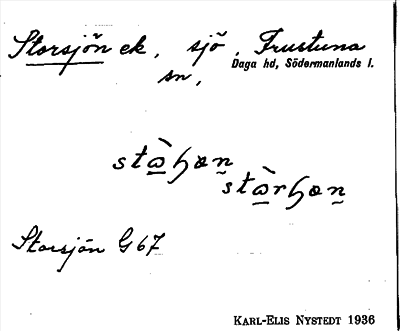 Storsjön ek, sjö, Frustuna
sn, Daga hd, Södermanlands l.
stɑ̠̀ɧən̠
stɑ̠̀rɧən̠
Storsjön G 67
KARL-ELIS NYSTEDT 1936